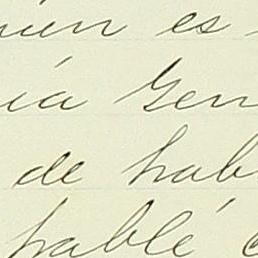 uien es
ía Gen
de habl
hablé